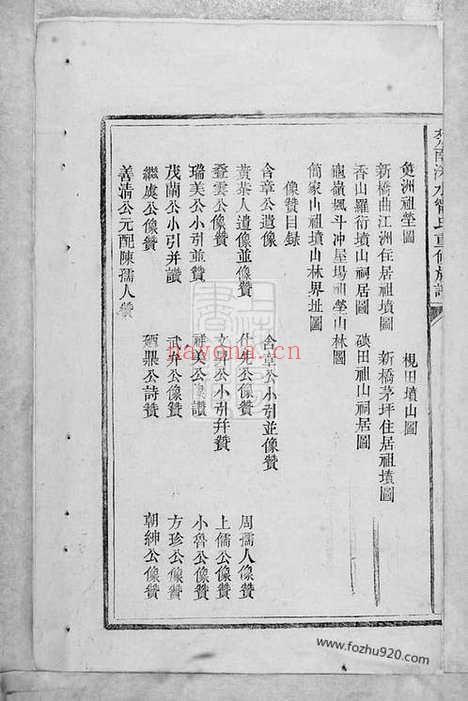 楚南
氏重修族譜
魚洲祖塋圖 梘田墳山圖
新橋曲江洲住居祖墳圖 新橋茅坪住居祖墳圖
香山羅衍墳山祠居圖 磉田祖山祠居圖
龜嶺楓斗冲屋塲祖塋山林圖
簡家山祖墳山林界址圖
像贊目録
含章公遺像 含章公小引並像贊
黃恭人遺像並像贊 像贊 周孺人像贊
登雲公像贊 文 公小引幷贊 上儒公像贊
瑞美公小引並贊 祥美公像讚 小魯公像贊
茂蘭公小引并讚 武昇公像贊 方珍公像贊
繼虞公像贊 廼鼎公詩贊 朝紳公像贊
善清公元配陳孺人贊
nayona.cn
www.fozhu920.com